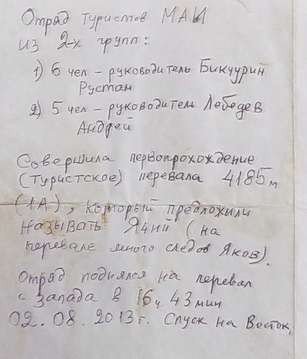 Отряд туристов МАИ
из 2-х групп:
1) 6 чел – руководитель Бикчурин
Рустам
2) 5 чел – руководитель Лебедев
Андрей
Совершила первопрохождение
(туристское) перевала 4185м
(1А), который предложили
называть Ячий (на
перевале много следов Яков).
Отряд поднялся на перевал
с запада в 16ч 43мин
02.08.2013г. Спуск на Восток,